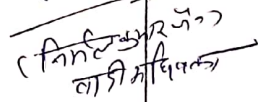 (निर्मल कुमार जैन)
वादी अधिवक्ता